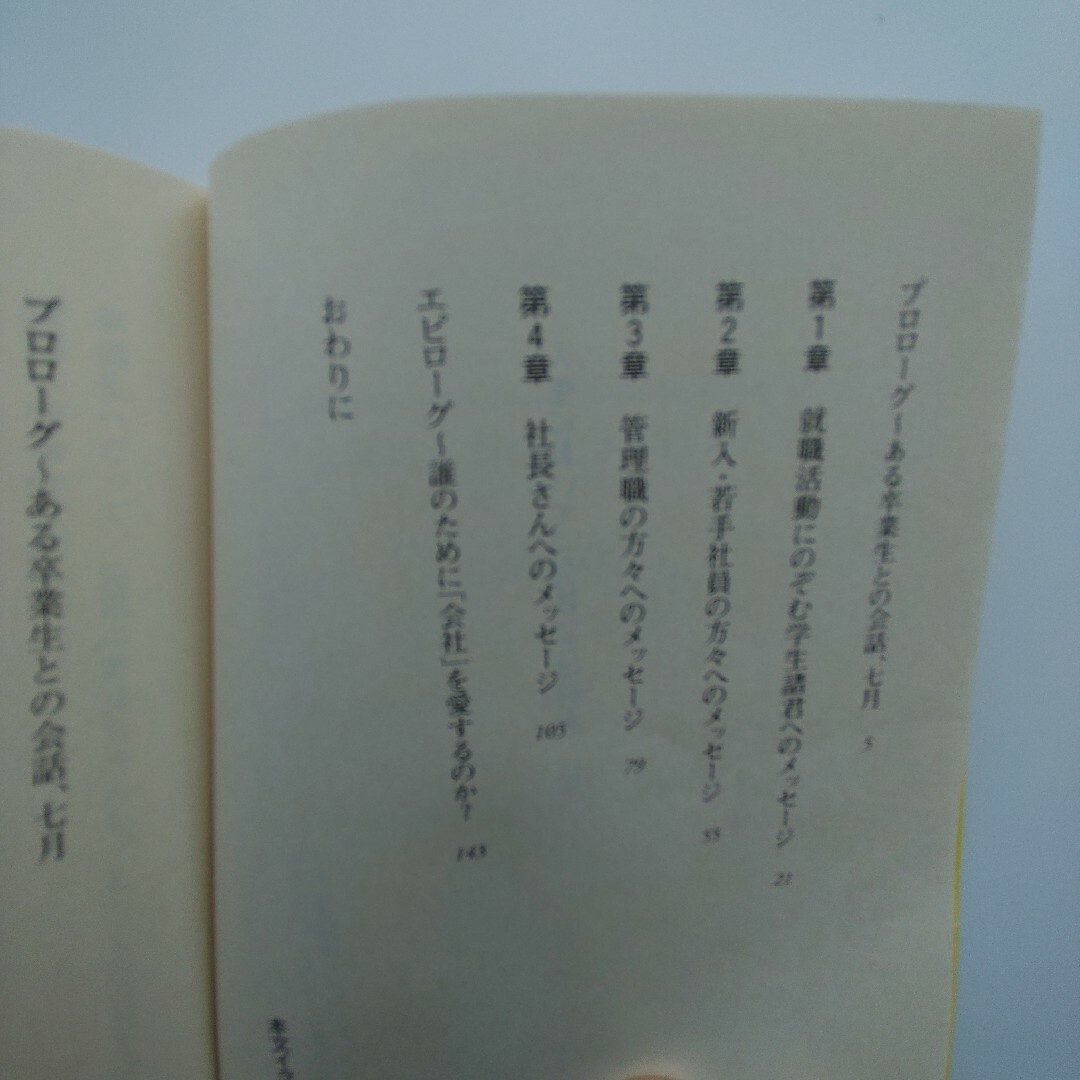 プロローグ～ある卒業生との会話、七月 5
第1章 就職活動にのぞむ学生諸君へのメッセージ 21
第2章 新人・若手社員の方々へのメッセージ 55
第3章 管理職の方々へのメッセージ 79
第4章 社長さんへのメッセージ 105
エピローグ～誰のために「会社」を愛するのか? 143
おわりに
プロローグ～ある卒業生との会話、七月